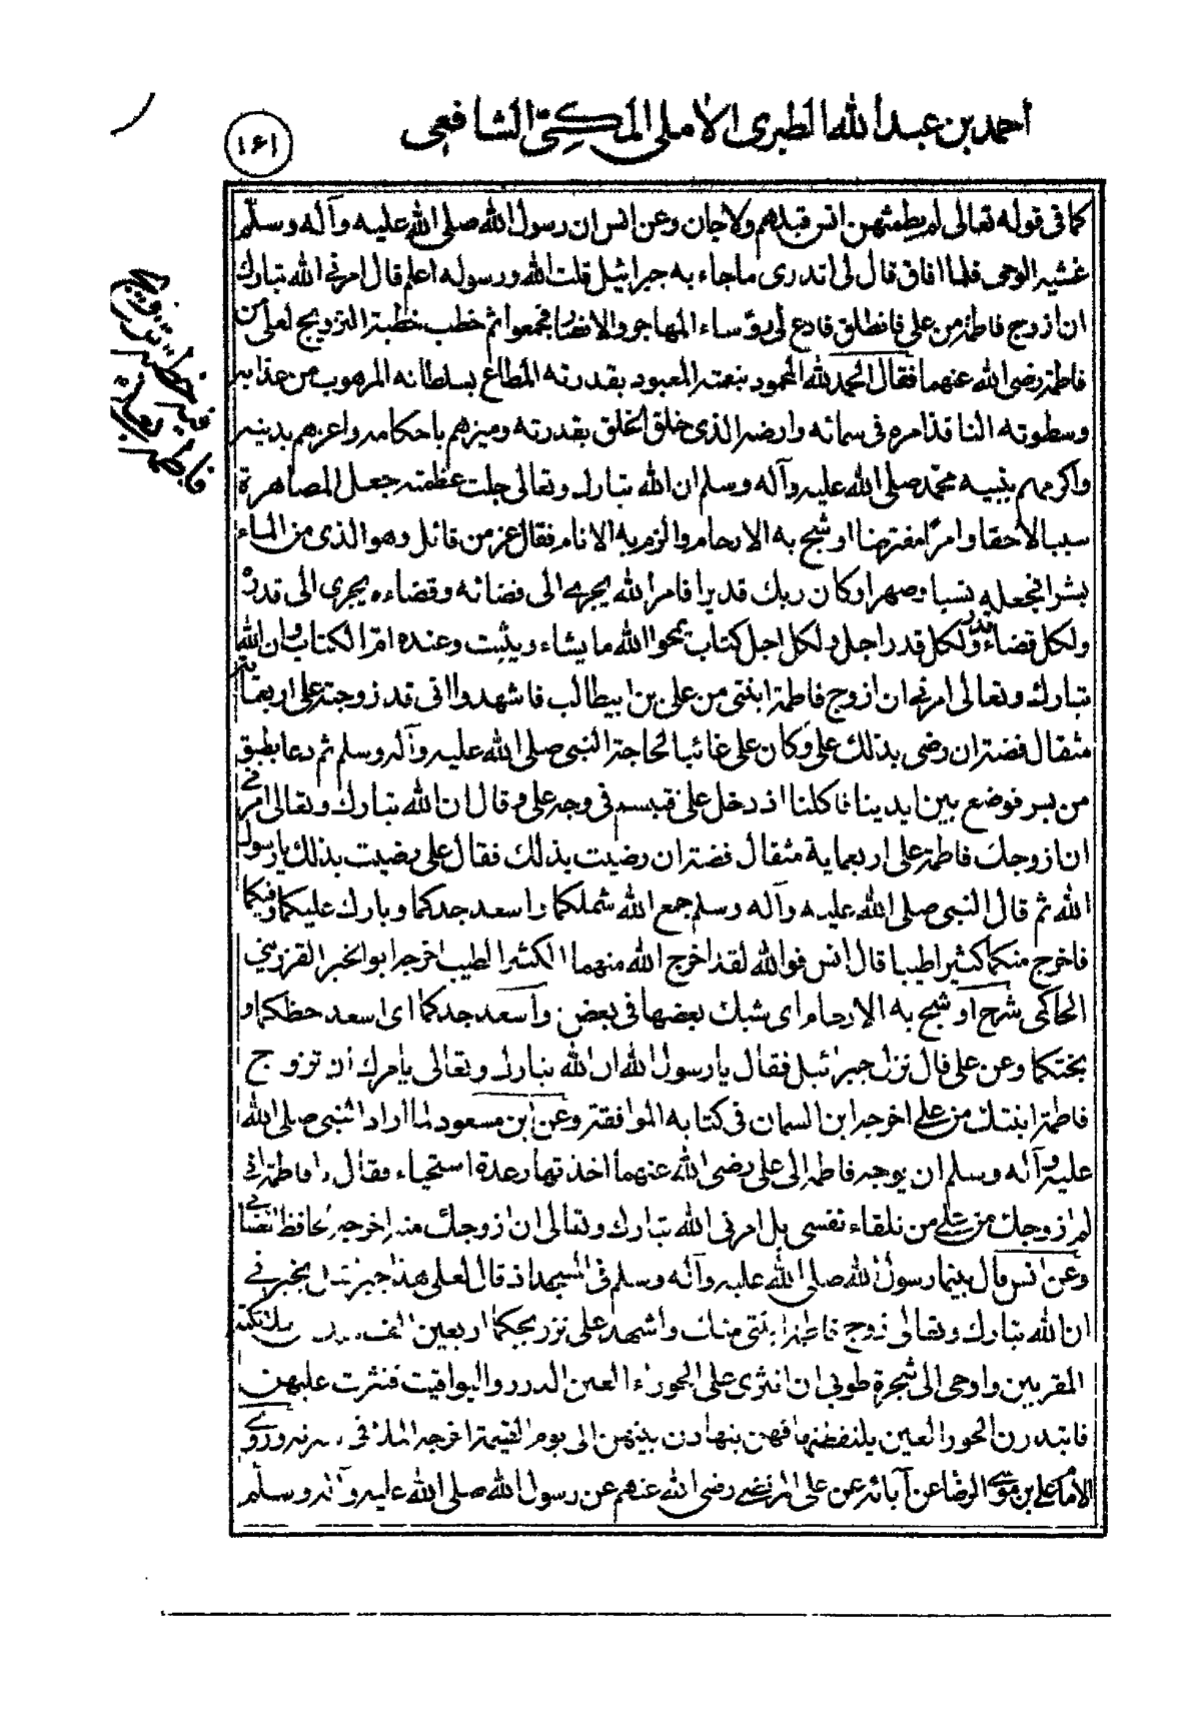 احمد بن عبد الله الطبرى الاملى المكىّ الشافعى
١٦١
كما فى قوله تعالى لم يطمثهن انس قبلهم ولا جان وعن انس ان رسول الله صلى الله عليه وآله وسلّم
غشيه الوحى فلما افاق قال لى اتدرى ما جاء به جبرائيل قلت الله ورسوله اعلم قال امرنى الله تبارك
ان ازوج فاطمة من على فانطلق فادع لى رؤساء المهاجر والانصار فجمعوا ثم خطب خطبة التزويج لعلى من
فاطمة رضى الله عنهما فقال الحمد لله المحمود بنعمته المعبود بقدرته المطاع بسلطانه المرهوب من عذابه
وسطوته النافذ امره فى سمائه وارضه الذى خلق الخلق بقدرته وميزهم باحكامه واعزهم بدينه
واكرمهم بنبيه محمّد صلى الله عليه وآله وسلم ان الله تبارك وتعالى جلت عظمته جعل المصاهرة
سببا لاحقا وامرًا مفترضا اوشج به الارحام والزم به الانام فقال عز من قائل وهو الذى من الماء
بشرا فجعله نسبا وصهرا وكان ربك قديرا فامر الله يجرى الى قضائه وقضاءه يجرى الى قدره
ولكل قضاء قدر ولكل قدر اجل ولكل اجل كتاب يمحو الله ما يشاء ويثبت وعنده امّ الكتاب وان الله
تبارك وتعالى امرنى ان ازوج فاطمة ابنتى من على بن ابيطالب فاشهدوا انى قد زوجته على اربعمائة
مثقال فضة ان رضى بذلك على وكان على غائبا لحاجة النبى صلى الله عليه وآله وسلم ثم دعا بطبق
من بسر فوضع بين ايدينا فاكلنا اذ دخل على فتبسم فى وجه على وقال ان الله تبارك وتعالى امرنى
ان ازوجك فاطمة على اربعماية مثقال فضة ان رضيت بذلك فقال على رضيت بذلك يا رسول
الله ثم قال النبى صلى الله عليه وآله وسلم جمع الله شملكما واسعد جدكما وبارك عليكما وفيكما
فاخرج منكما كثيرا طيبا قال انس فوالله لقد اخرج الله منهما الكثير الطيب اخرجه ابو الخير القزوينى
الحاكى شرح اوشج به الارحام اى شبك بعضها فى بعض واسعد جدكما اى اسعد حظكما و
بختكما وعن على قال نزل جبرئيل فقال يا رسول الله ان الله تبارك وتعالى يأمرك ان تزوج
فاطمة ابنتك من على اخرجه ابن السمان فى كتابه الموافقة وعن ابن مسعود لما اراد النبى صلى الله
عليه وآله وسلم ان يوجه فاطمة الى على رضى الله عنهما اخذتها رعدة استحياء فقال يا فاطمة انى
لم ازوجك من على من تلقاء نفسى بل امرنى الله تبارك وتعالى ان ازوجك منه اخرجه الحافظ الغسانى
وعن انس قال بينما رسول الله صلى الله عليه وآله وسلم فى المسجد اذ قال لعلى هذا جبرئيل يخبرنى
ان الله تبارك وتعالى زوج فاطمة ابنتى منك واشهد على تزويجكما اربعين الف ملائكته
المقربين واوحى الى شجرة طوبى ان انثرى على الحوراء العين الدرر واليواقيت فنثرت عليهن
فابتدرن الحور العين يلتقطنها فهن يتهادن بينهن الى يوم القيمة اخرجه الملا فى سيرته وروى
الامام على بن موسى الرضا عن آبائه عن على المرتضى رضى الله عنهم عن رسول الله صلى الله عليه وآله وسلّم
فاطمة